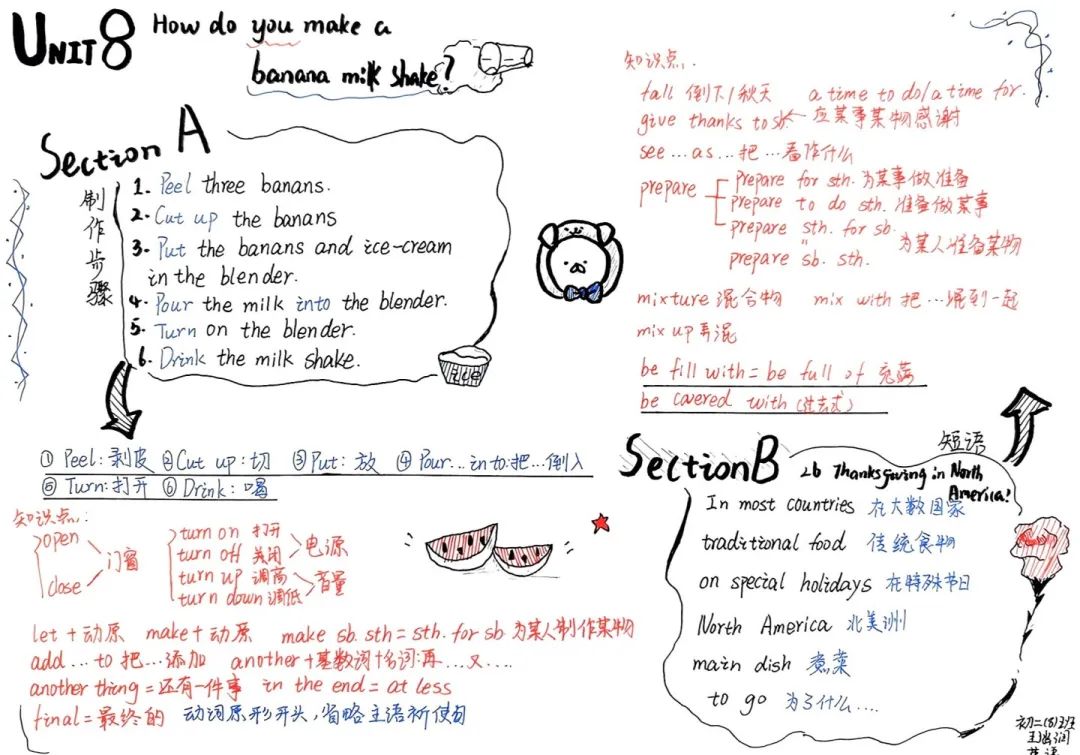 UNIT 8 How do you make a
banana milk shake?
Section A
制作步骤
1. Peel three banans.
2. Cut up the banans
3. Put the banans and ice-cream
in the blender.
4. Pour the milk into the blender.
5. Turn on the blender.
6. Drink the milk shake.
① Peel: 剥皮 ② Cut up: 切 ③ Put: 放 ④ Pour...in to: 把...倒入
⑤ Turn: 打开 ⑥ Drink: 喝
知识点:
open
close
门窗
turn on 打开
turn off 关闭
电源
turn up 调高
turn down 调低
音量
let + 动原 make + 动原 make sb. sth = sth. for sb 为某人制作某物
add ... to 把...添加 another + 基数词 + 名词: 再...又....
another thing = 还有一件事 in the end = at less
final = 最终的 动词原形开头, 省略主语祈使句
知识点:
fall 倒下/秋天 a time to do/a time for.
give thanks to sb. 应某事某物感谢
see ... as ... 把 ... 看作什么
prepare
prepare for sth. 为某事做准备
prepare to do sth. 准备做某事
prepare sth. for sb.
prepare sb. sth.
为某人准备某物
mixture 混合物 mix with 把...混到一起
mix up 弄混
be fill with = be full of 充满
be covered with (过去式)
Section B
短语
2b Thanksgiving in North
America!
In most countries 在大数国家
traditional food 传统食物
on special holidays 在特殊节日
North America 北美洲
main dish 煮菜
to go 为了什么....
初二(8)班
英语